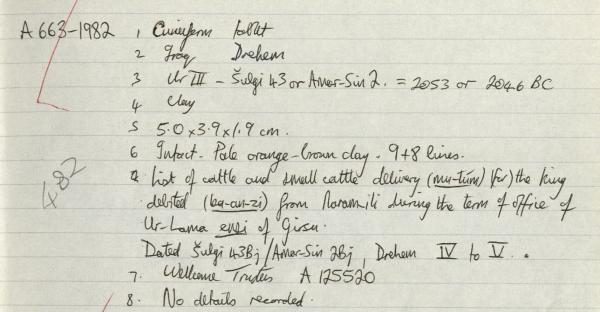 A 663-1982 1 Cuneiform tablet
2 Iraq Drehem
3 Ur III - Šulgi 43 or Amar-Sin 2. = 2053 or 2046 BC
4 Clay
5 5.0 x 3.9 x 1.9 cm.
6 Intact. Pale orange-brown clay. 9+8 lines.
List of cattle and small cattle delivery (mu-túm) (for) the king
482
debited (ba-an-zi) from Naramili during the term of office of
Ur-Lama ensi of Girsu.
Dated Šulgi 43Bj / Amar-Sin 2Bj, Drehem IV to V.
7. Wellcome Trustees A 125520
8. No details recorded.